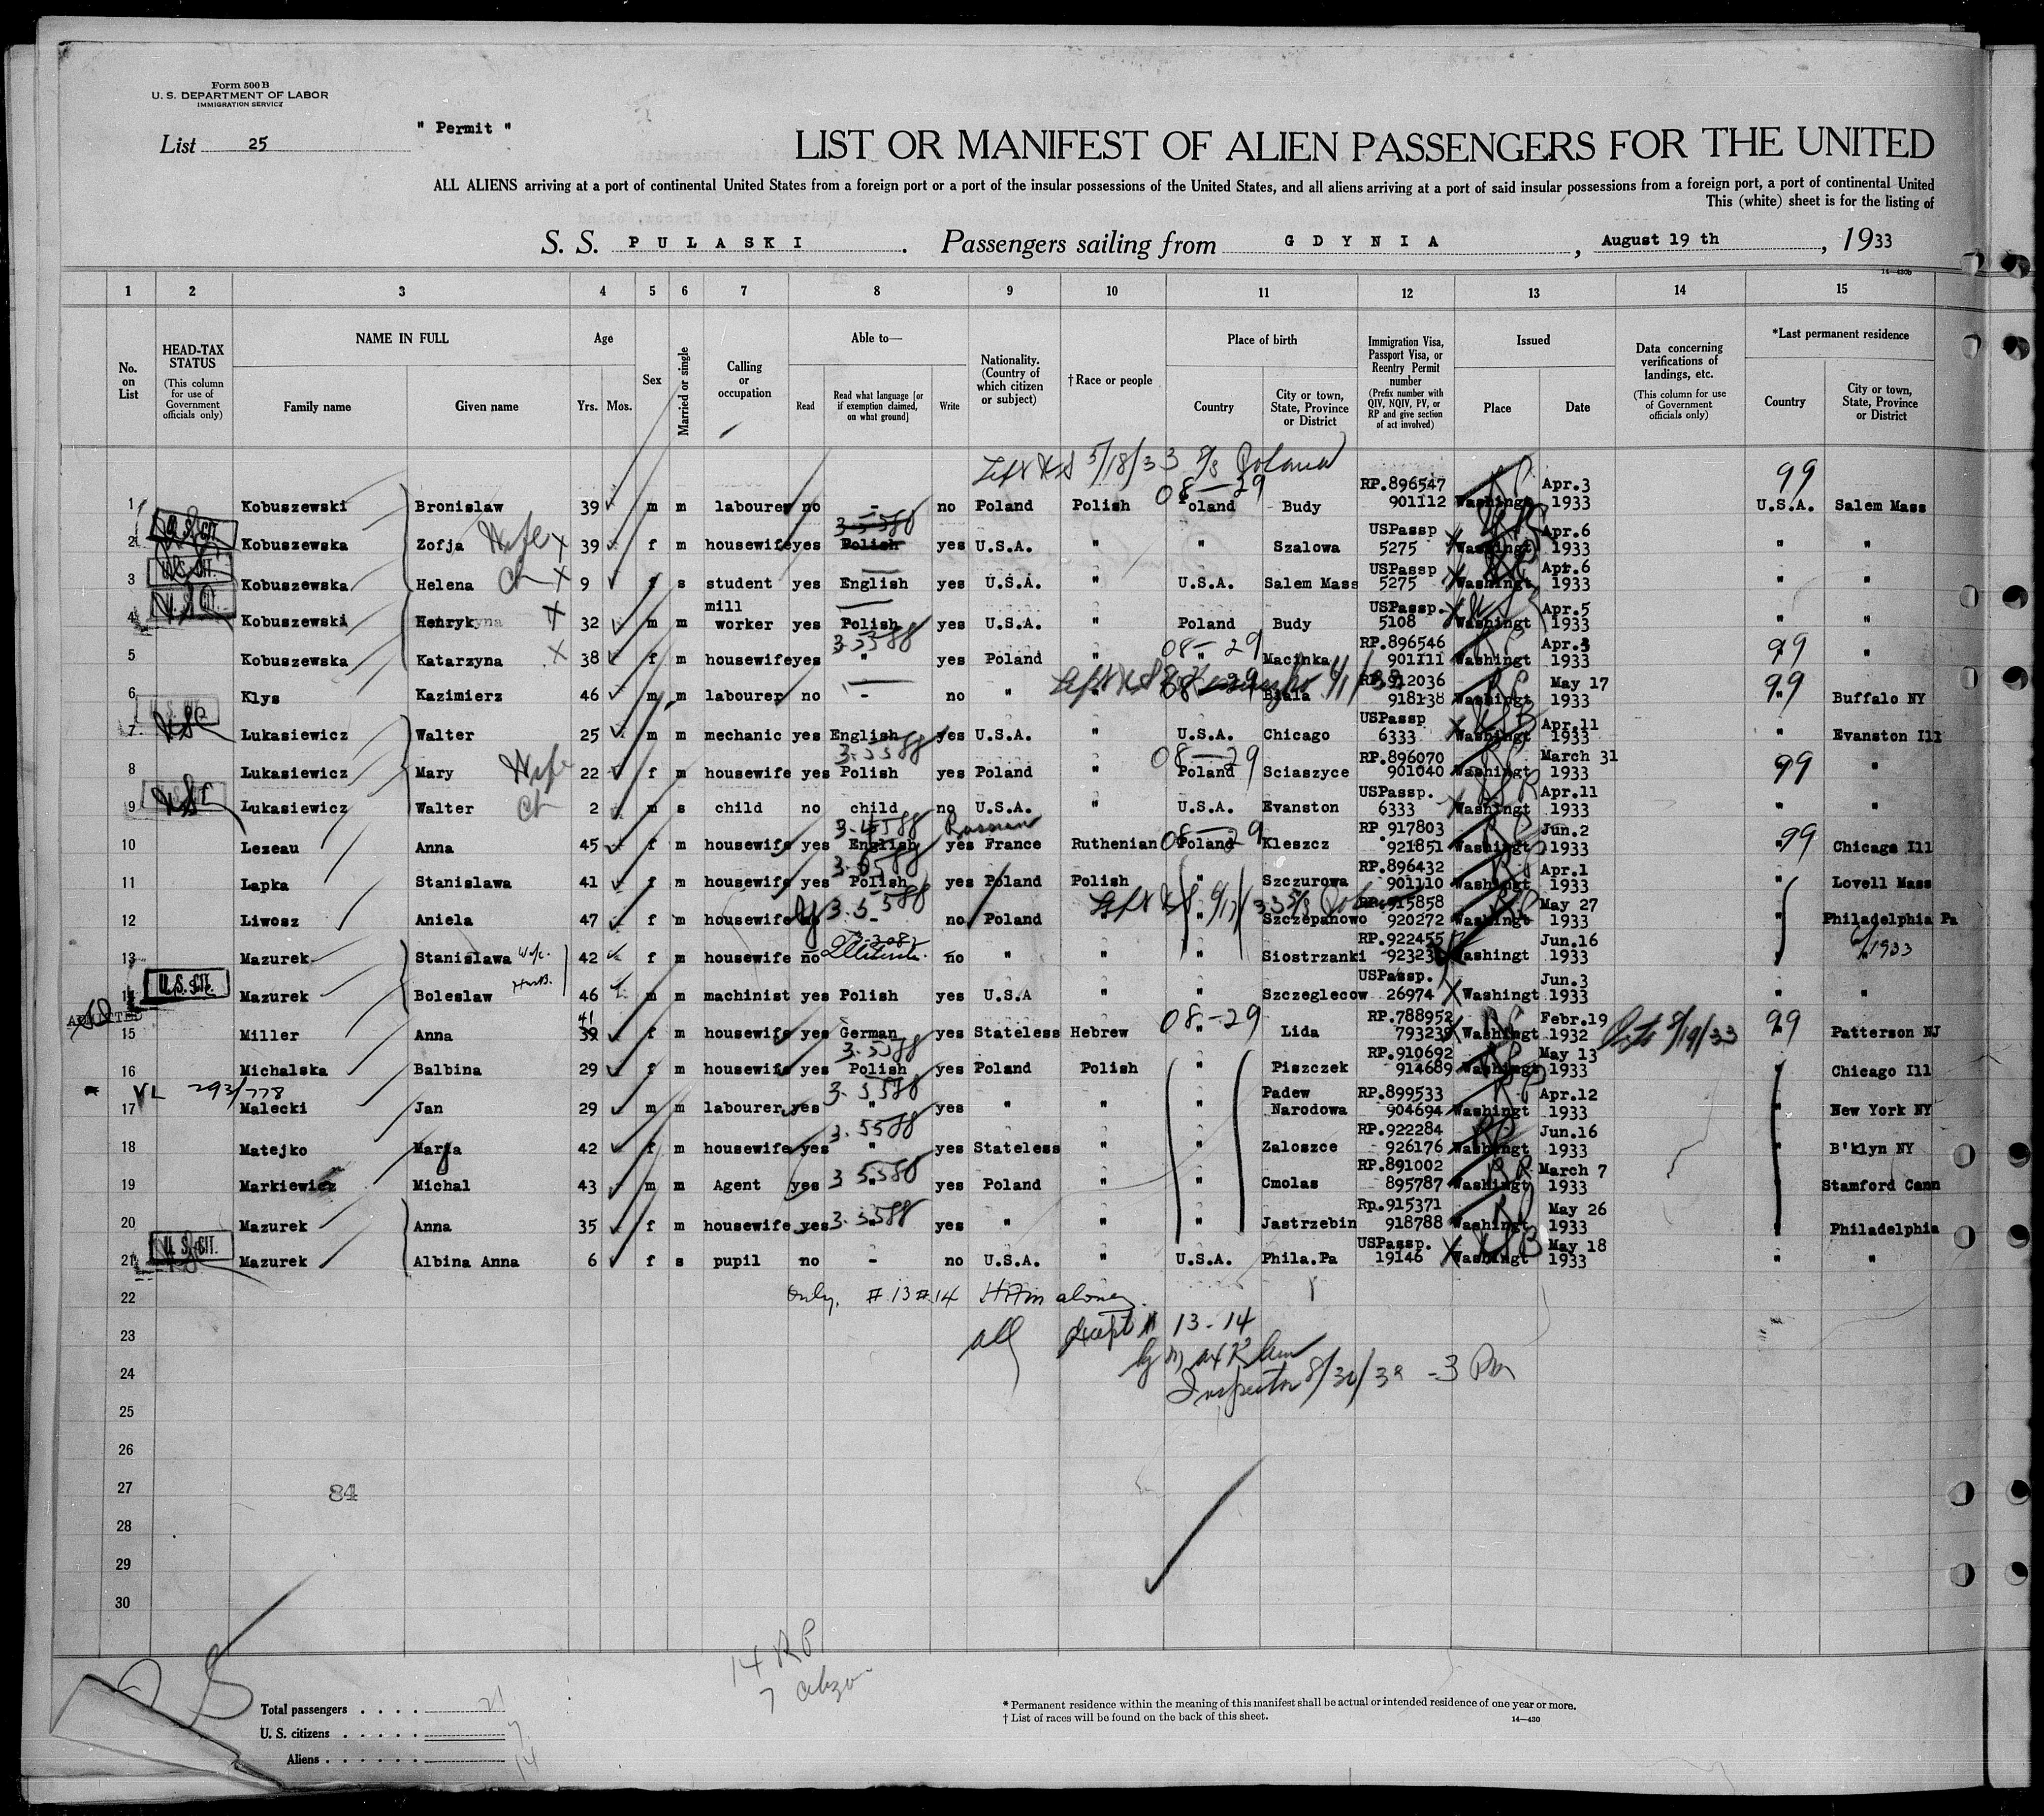 Form 500 B
U. S. DEPARTMENT OF LABOR
IMMIGRATION SERVICE
List 25
" Permit "
LIST OR MANIFEST OF ALIEN PASSENGERS FOR THE UNITED
ALL ALIENS arriving at a port of continental United States from a foreign port or a port of the insular possessions of the United States, and all aliens arriving at a port of said insular possessions from a foreign port, a port of continental United
This (white) sheet is for the listing of
S. S. PULASKI. Passengers sailing from GDYNIA, August 19 th, 1933
14—430b
1 2 3 4 5 6 7 8 9 10 11 12 13 14 15
No. on List
HEAD-TAX STATUS (This column for use of Government officials only)
NAME IN FULL Family name Given name
Age Yrs. Mos.
Sex
Married or single
Calling or occupation
Able to— Read Read what language [or if exemption claimed, on what ground] Write
Nationality. (Country of which citizen or subject)
† Race or people
Place of birth Country City or town, State, Province or District
Immigration Visa, Passport Visa, or Reentry Permit number (Prefix number with QIV, NQIV, PV, or RP and give section of act involved)
Issued Place Date
Data concerning verifications of landings, etc. (This column for use of Government officials only)
*Last permanent residence Country City or town, State, Province or District
Left US 5/18/33 Poland 99
08—29
1 Kobuszewski Bronislaw 39 m m labourer no - no Poland Polish Poland Budy RP.896547 901112 Washingt Apr.3 1933 U.S.A. Salem Mass
3-5588
2 U.S. CIT. Kobuszewska Zofja Wife X 39 f m housewife yes Polish yes U.S.A. " " Szalowa USPassp 5275 Washingt Apr.6 1933 " "
3 U.S. CIT. Kobuszewska Helena Ch X 9 f s student yes English yes U.S.A. " U.S.A. Salem Mass USPassp 5275 Washingt Apr.6 1933 " "
4 U.S. CIT. Kobuszewski Henryk X 32 m m mill worker yes Polish yes U.S.A. " Poland Budy USPassp. 5108 Washingt Apr.5 1933 " "
3-5588 08—29 99
5 Kobuszewska Katarzyna X 38 f m housewife yes " yes Poland " " Macinka RP.896546 901111 Washingt Apr.3 1933 " "
Left US 08—29 99
6 Klys Kazimierz 46 m m labourer no - no " " " Biala RP.912036 918138 Washingt May 17 1933 " Buffalo NY
7 Lukasiewicz Walter 25 m m mechanic yes English yes U.S.A. " U.S.A. Chicago USPassp 6333 Washingt Apr.11 1933 " Evanston Ill
3-5588 08—29 99
8 Lukasiewicz Mary Wife 22 f m housewife yes Polish yes Poland " Poland Sciaszyce RP.896070 901040 Washingt March 31 1933 " "
9 Lukasiewicz Walter Ch 2 m s child no child no U.S.A. " U.S.A. Evanston USPassp. 6333 Washingt Apr.11 1933 " "
Russian 08—29 99
10 Lezeau Anna 45 f m housewife yes English yes France Ruthenian Poland Kleszcz RP 917803 921851 Washingt Jun.2 1933 " Chicago Ill
11 Lapka Stanislawa 41 f m housewife yes Polish yes Poland Polish " Szczurowa RP.896432 901110 Washingt Apr.1 1933 " Lovell Mass
3-5588
12 Liwosz Aniela 47 f m housewife - no Poland " Szczepanowo RP.915858 920272 Washingt May 27 1933 " Philadelphia Pa
13 Mazurek Stanislawa Wife. 42 f m housewife no Illiterate. no " " " Siostrzanki RP.922455 Washingt Jun.16 1933 "
14 U.S. CIT. Mazurek Boleslaw Husb. 46 m m machinist yes Polish yes U.S.A " " Szczeglecow USPassp. 26974 Washingt Jun.3 1933 " "
ADMITTED 41 08—29 99
15 Miller Anna 39 f m housewife yes German yes Stateless Hebrew " Lida RP.788952 793239 Washingt Febr.19 1932 8/19/33 " Patterson NJ
3-5588
16 Michalska Balbina 29 f m housewife yes Polish yes Poland Polish " Piszczek RP.910692 914689 Washingt May 13 1933 " Chicago Ill
VL 293/778 3-5588
17 Malecki Jan 29 m m labourer yes " yes " " " Padew Narodowa RP.899533 904694 Washingt Apr.12 1933 " New York NY
3-5588
18 Matejko Marja 42 f m housewife yes " yes Stateless " " Zaloszce RP.922284 926176 Washingt Jun.16 1933 " B'klyn NY
19 Markiewicz Michal 43 m m Agent yes 3 5588 " yes Poland " " Cmolas RP.891002 895787 Washingt March 7 1933 " Stamford Cann
20 Mazurek Anna 35 f m housewife yes 3-5588 " yes " " " Jastrzebin Rp.915371 918788 Washingt May 26 1933 " Philadelphia
21 U.S. CIT. Mazurek Albina Anna 6 f s pupil no - no U.S.A. " U.S.A. Phila.Pa USPassp. 19146 Washingt May 18 1933 " "
22 Only. # 13 # 14
23 all except # 13-14
24 Inspector 8/30/33 - 3 Pm
25
26
27 84
28
29
30
14 RP
7
Total passengers . . . . 21
U. S. citizens . . . . . 7
Aliens . . . . . . 14
* Permanent residence within the meaning of this manifest shall be actual or intended residence of one year or more.
† List of races will be found on the back of this sheet. 14—430